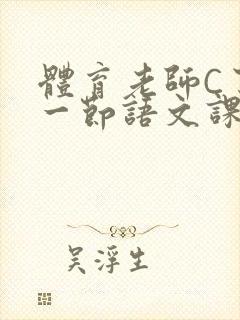 體育老師C
一節語文課
吳浮生